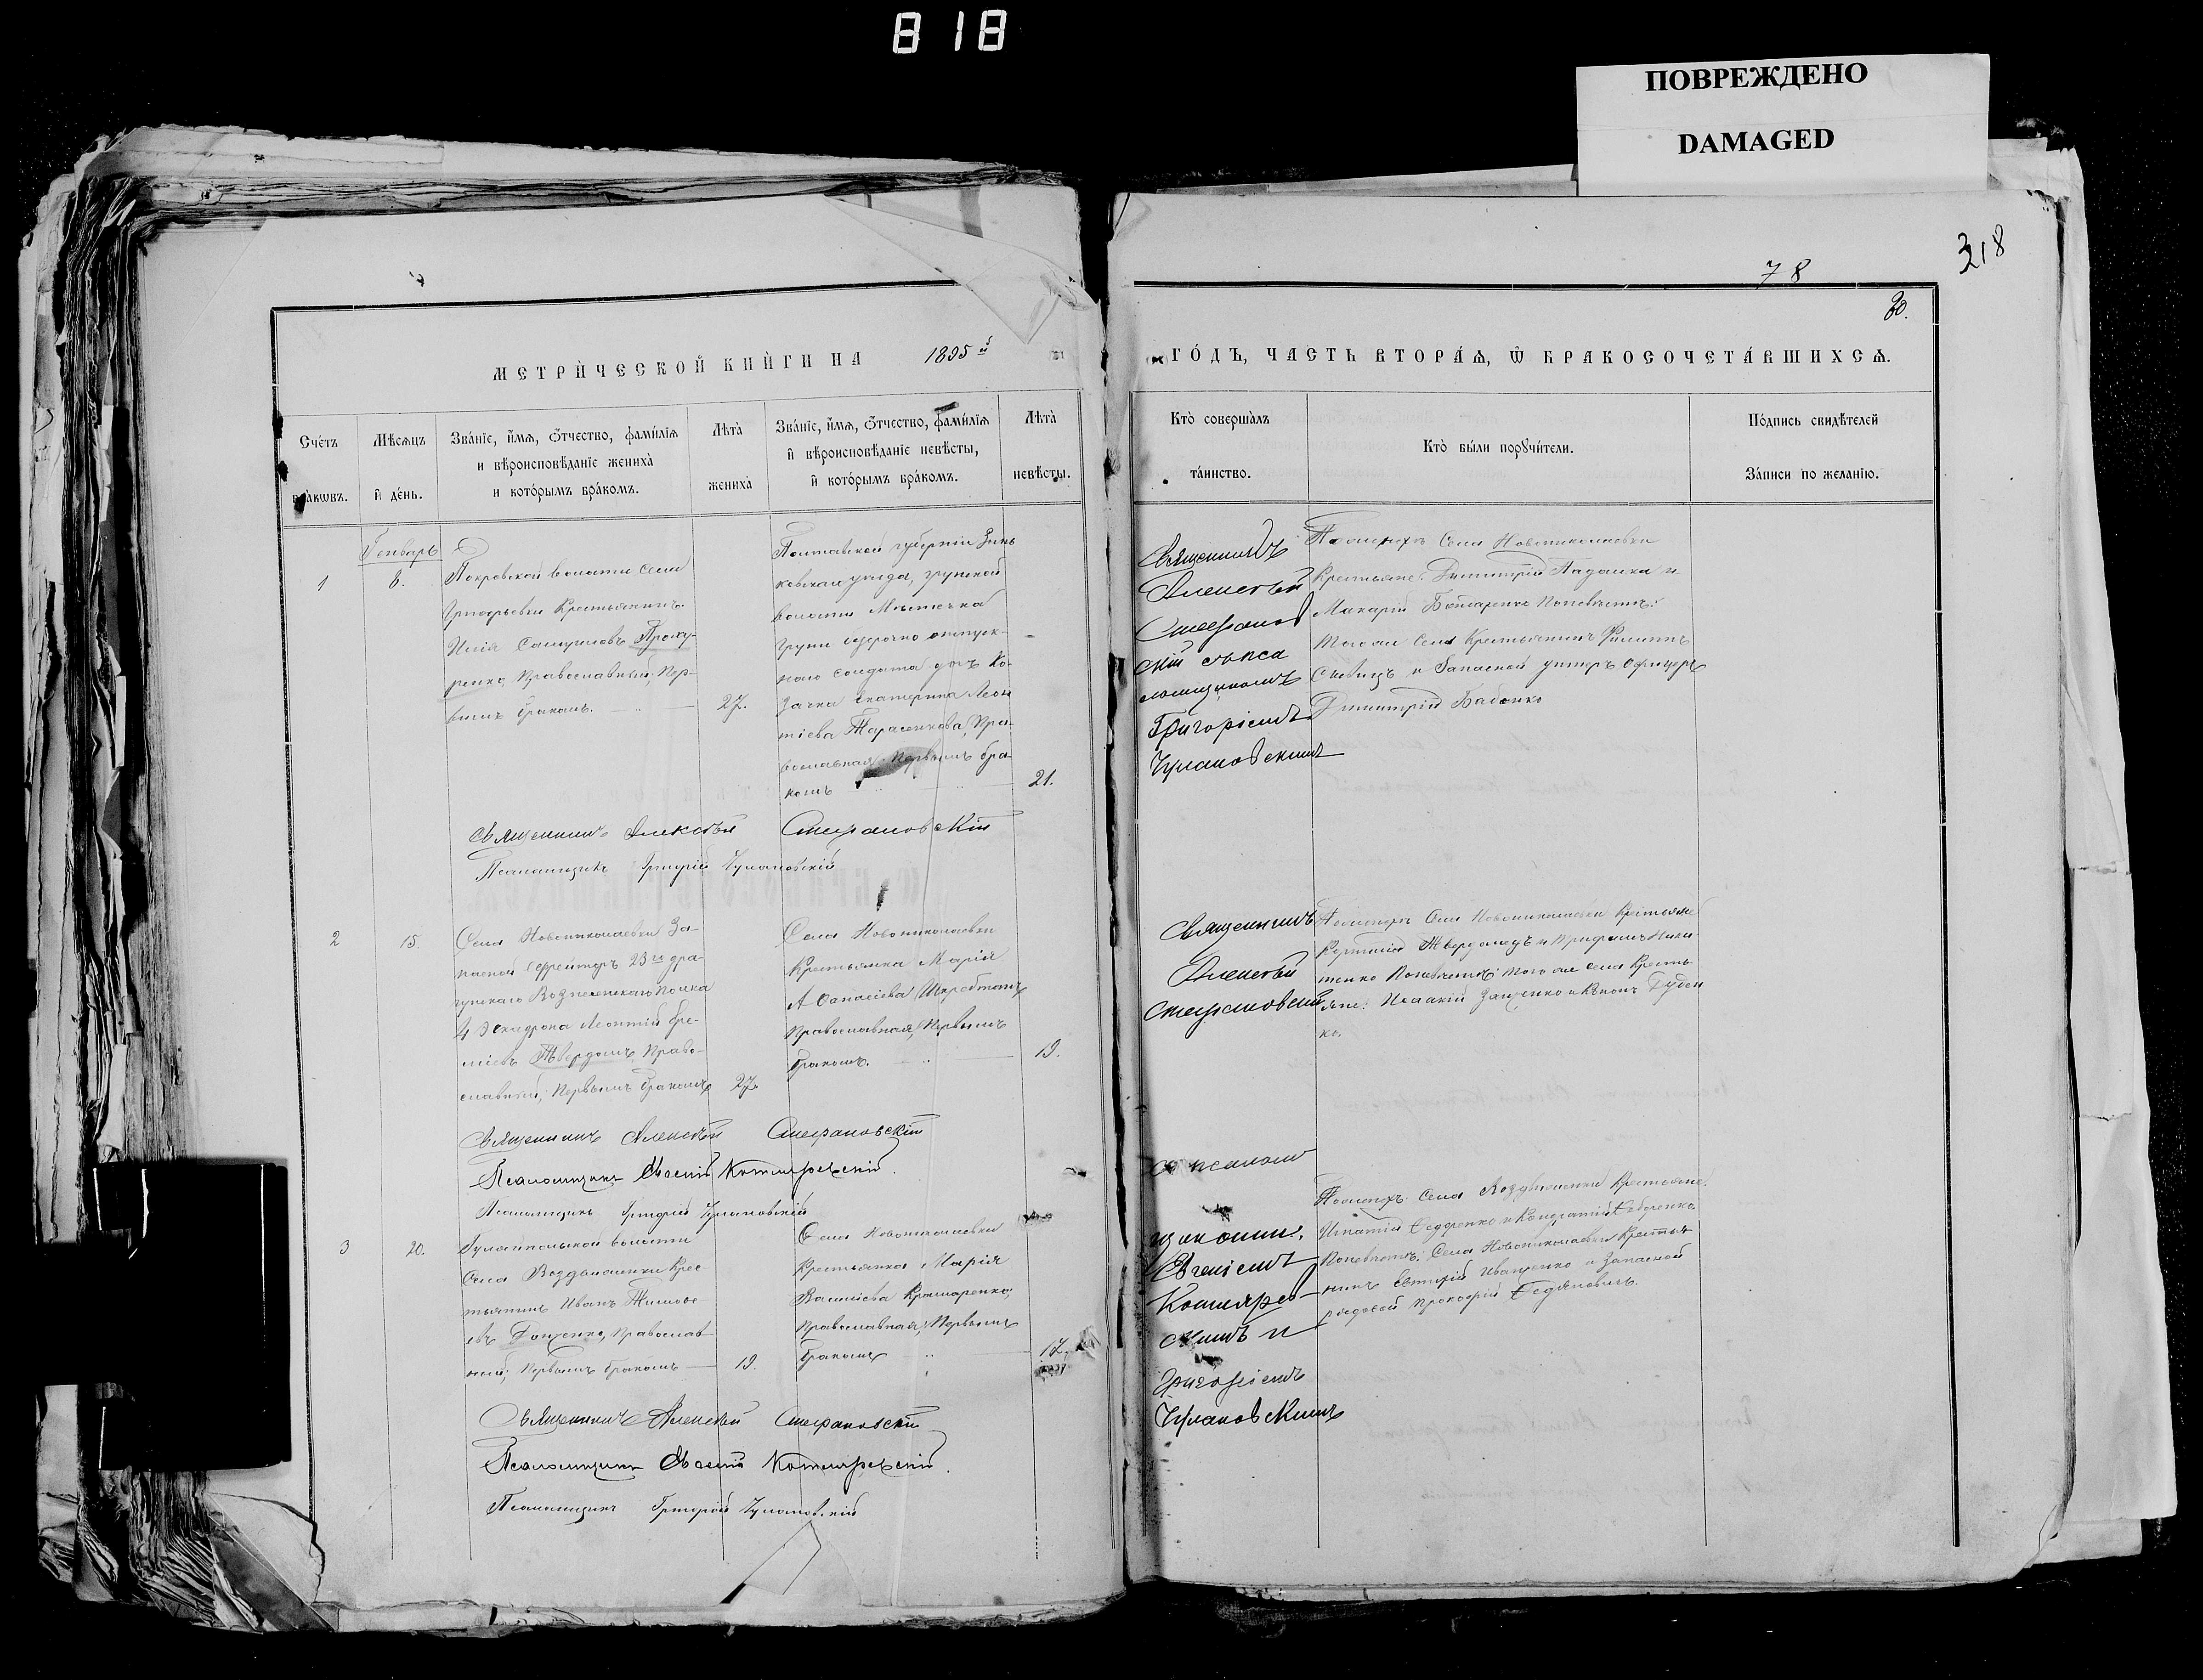 818
ПОВРЕЖДЕНО
DAMAGED
318
78
МЕТРИ́ЧЕСКОЙ КНИ́ГИ НА 1895й
ГО́ДЪ, ЧАСТЬ ВТОРА́Ѧ, Ѿ БРАКОСОЧЕТА́ВШИХСѦ.
Сче́тъ
бра́кѡвъ.
Мѣ́сѧцъ
и҆ де́нь.
Зва́нїе, и҆́мѧ, ѻ҆́тчество, фами́лїѧ
и вѣроисповѣ́данїе жениха̀
и кото́рымъ бра́комъ.
Лѣта̀
жениха̀
Зва́нїе, и҆́мѧ, ѻ҆́тчество, фами́лїѧ
и҆ вѣроисповѣ́данїе невѣ́сты,
и҆ кото́рымъ бра́комъ.
Лѣта̀
невѣ́сты.
Кто̀ соверша́лъ
та́инство.
Кто̀ бы́ли порꙋчи́тели.
По́дпись свидѣ́телей
За́писи по жела́нїю.
Генварь
1
8.
Покровской волости села
Григорьевки Крестьянинъ
Илія Самуиловъ Проку-
ренко, Православный, Пер-
вымъ бракомъ.
27.
Полтавской губерніи Зинь
ковскаго уѣзда, Грунской
волости Мѣстечка
Груни безсрочно отпуск-
наго солдата дочь Ко-
зачка Екатерина Леон
тіева Тарасенкова, Пра-
вославная, Первымъ бра-
комъ
21.
Священникъ
Алексѣй
Стефанов
скій съ пса
ломщикомъ
Григоріемъ
Чулановскимъ
По женихѣ Села Новониколаевки
Крестьяне: Димитрій Падалка и
Макарій Бондаренко по невѣстѣ:
того же Села Крестьянинъ Филиппъ
и Запасной унтеръ офицеръ
Димитрій Бабенко
Священникъ Алексѣй Стефановскій
Псаломщикъ Григорій Чулановскій
2
15.
Села Новониколаевки За-
пасной Ефрейторъ 23го дра-
гунскаго Вознесенскаго полка
4 Эскадрона Леонтій Ере-
міевъ Право-
славный, Первымъ бракомъ
27.
Села Новониколаевки
Крестьянка Марія
Аѳанасіева
Православная, Первымъ
бракомъ.
19.
Священникъ
Алексѣй
Стефановскій
По женихѣ Села Новониколаевки Крестьяне
и Трифонъ Ники-
тенко по невѣстѣ: того же села Кресть-
яне: Исаакій
ко.
Священникъ Алексѣй Стефановскій
Псаломщикъ Евгеній Котляревскій.
Псаломщикъ Григорій Чулановскій
съ псалом
щиками:
Евгеніемъ
Котляров-
скимъ и
Григоріемъ
Чулановскимъ
3
20.
Гуляйпольской волости
Села Воздвиженки Крес-
тьянинъ Иванъ Тимоѳе-
евъ Доценко, Православ-
ный, Первымъ бракомъ
19.
Села Новониколаевки
Крестьянка Марія
Василіева Крамаренко,
Православная, Первымъ
бракомъ
17.
По женихѣ: Села Воздвиженки Крестьяне:
Игнатій Ѳедоренко и Кондратій
По невѣстѣ: Села Новониколаевки Крестья-
нинъ Иващенко и Запасной
рядовой Прокофій
Священникъ Алексѣй Стефановскій
Псаломщикъ Евгеній Котляревскій.
Псаломщикъ Григорій Чулановскій